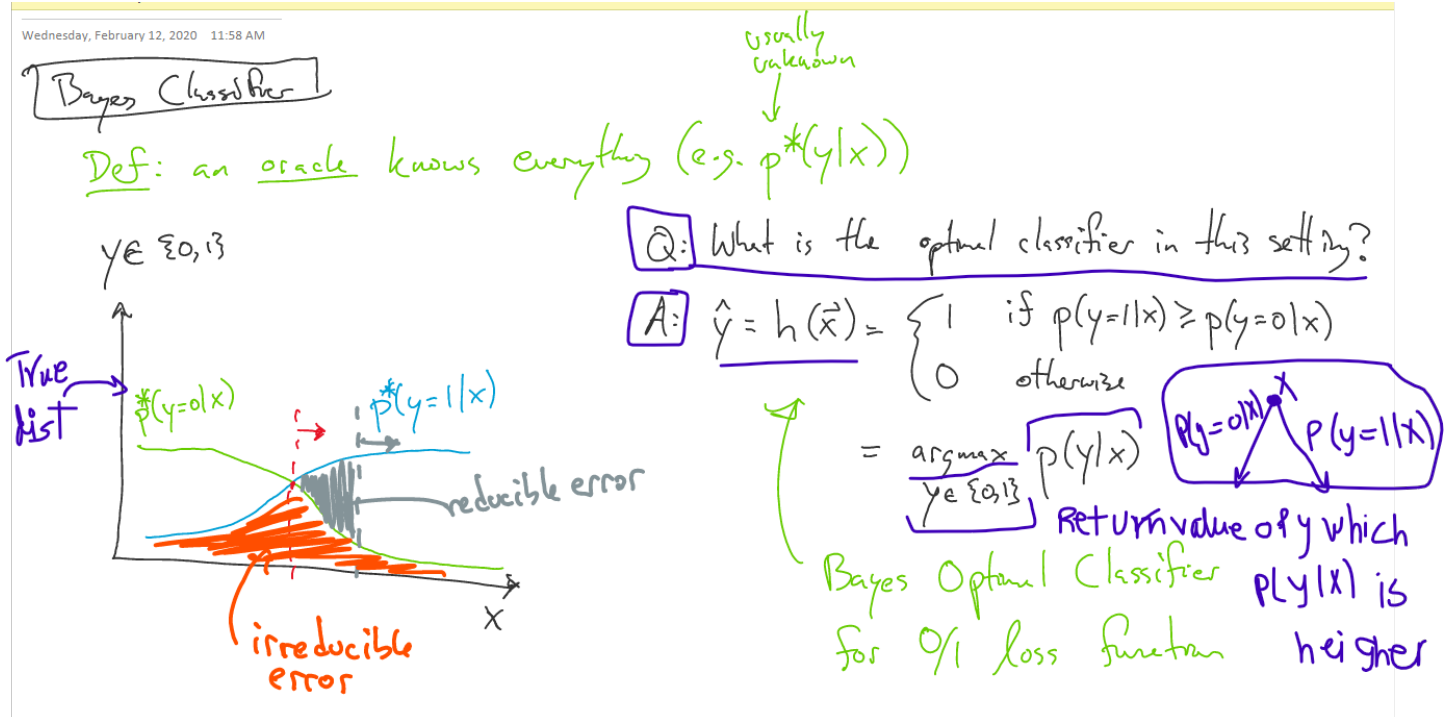 Wednesday, February 12, 2020 11:58 AM
usually
unknown
Bayes Classifier
Def: an oracle knows everything (e.g. p*(y|x))
y∈ {0,1}
Q: What is the optimal classifier in this setting?
A: ŷ = h(x⃗) = { 1 if p(y=1|x) ≥ p(y=0|x)
0 otherwise
= argmax p(y|x)
y∈ {0,1}
X
p(y=0|x)
p(y=1|x)
Return value of y which
p(y|x) is
heigher
Bayes Optimal Classifier
for 0/1 loss function
True
dist
p*(y=0|x)
p*(y=1|x)
reducible error
X
irreducible
error